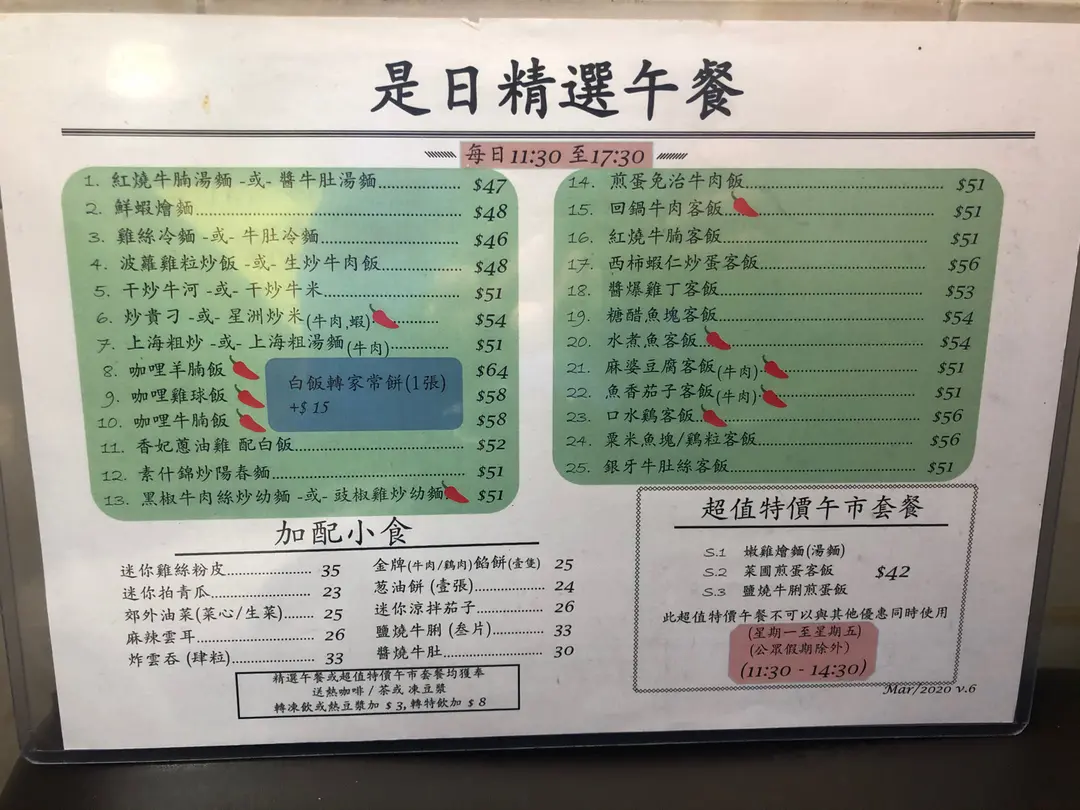 是日精選午餐
每日11:30 至17:30
1. 紅燒牛腩湯麵 -或- 醬牛肚湯麵 $47
2. 鮮蝦燴麵 $48
3. 雞絲冷麵 -或- 牛肚冷麵 $46
4. 波蘿雞粒炒飯 -或- 生炒牛肉飯 $48
5. 干炒牛河 -或- 干炒牛米 $51
6. 炒貴刁 -或- 星洲炒米(牛肉,蝦) $54
7. 上海粗炒 -或- 上海粗湯麵(牛肉) $51
8. 咖哩羊腩飯 $64
9. 咖哩雞球飯 $58
10. 咖哩牛腩飯 $58
白飯轉家常餅(1張)
+$ 15
11. 香妃蔥油雞 配白飯 $52
12. 素什錦炒陽春麵 $51
13. 黑椒牛肉絲炒幼麵 -或- 豉椒雞炒幼麵 $51
14. 煎蛋免治牛肉飯 $51
15. 回鍋牛肉客飯 $51
16. 紅燒牛腩客飯 $51
17. 西柿蝦仁炒蛋客飯 $56
18. 醬爆雞丁客飯 $53
19. 糖醋魚塊客飯 $54
20. 水煮魚客飯 $54
21. 麻婆豆腐客飯(牛肉) $51
22. 魚香茄子客飯(牛肉) $51
23. 口水鷄客飯 $56
24. 粟米魚塊/鷄粒客飯 $56
25. 銀牙牛肚絲客飯 $51
加配小食
迷你雞絲粉皮 35
迷你拍青瓜 23
郊外油菜(菜心/生菜) 25
麻辣雲耳 26
炸雲吞 (肆粒) 33
金牌(牛肉/鷄肉)餡餅(壹隻) 25
蔥油餅 (壹張) 24
迷你涼拌茄子 26
鹽燒牛脷 (叁片) 33
醬燒牛肚 30
精選午餐或超值特價午市套餐均獲奉
送熱咖啡 / 茶或 凍豆漿
轉凍飲或熱豆漿加 $ 3, 轉特飲加 $ 8
超值特價午市套餐
S.1 嫩雞燴麵(湯麵)
S.2 菜圃煎蛋客飯 $42
S.3 鹽燒牛脷煎蛋飯
此超值特價午餐不可以與其他優惠同時使用
(星期一至星期五)
(公眾假期除外)
(11:30 - 14:30)
Mar/2020 v.6